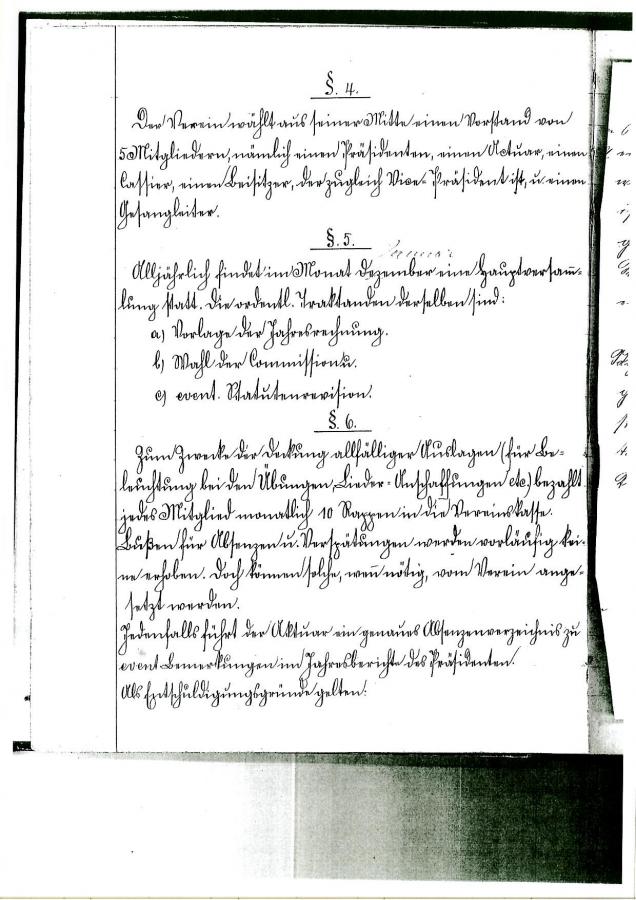 §. 4.
Der Verein wählt aus seiner Mitte einen Vorstand von
5 Mitgliedern, nämlich einen Präsidenten, einen Actuar, einen
Cassier, einen Beisitzer, der zugleich Vice-Präsident ist, u. einen
Gesangleiter.
§. 5.
Januar
Alljährlich findet im Monat Dezember eine Hauptversam̅-
lung statt. Die ordentl. Traktanden derselben sind:
a) Vorlage der Jahresrechnung.
b) Wahl der Commission u.
c) event. Statutenrevision.
§. 6.
Zum Zwecke der Deckung allfälliger Auslagen (für Be-
leuchtung bei den Übungen, Lieder-Anschaffungen etc.) bezahlt
jedes Mitglied monatlich 10 Rappen in die Vereinskasse.
Bußen für Absenzen u. Verspätungen werden vorläufig kei-
ne erhoben. Doch können solche, wen̅ nötig, vom Verein ange-
setzt werden.
Jedenfalls führt der Aktuar ein genaues Absenzenverzeichnis zu
event. Bemerkungen im Jahresberichte des Präsidenten.
Als Entschuldigungsgründe gelten: